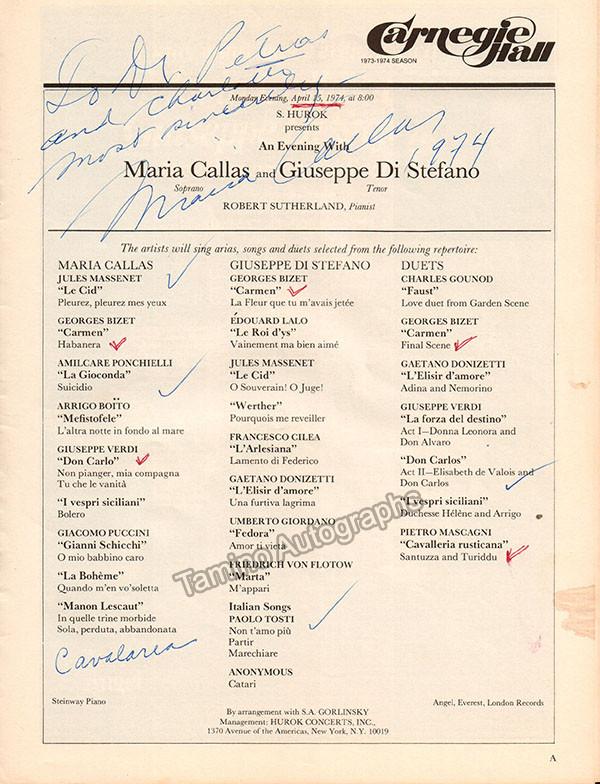 Carnegie Hall
1973-1974 SEASON
To Dr Petros
and Charlotte
most sincerely
Maria Callas 1974
Monday Evening, April 15, 1974, at 8:00
S. HUROK
presents
An Evening With
Maria Callas and Giuseppe Di Stefano
Soprano Tenor
ROBERT SUTHERLAND, Pianist
The artists will sing arias, songs and duets selected from the following repertoire:
MARIA CALLAS
JULES MASSENET
"Le Cid"
Pleurez, pleurez mes yeux
GEORGES BIZET
"Carmen"
Habanera
AMILCARE PONCHIELLI
"La Gioconda"
Suicidio
ARRIGO BOÏTO
"Mefistofele"
L'altra notte in fondo al mare
GIUSEPPE VERDI
"Don Carlo"
Non pianger, mia compagna
Tu che le vanità
"I vespri siciliani"
Bolero
GIACOMO PUCCINI
"Gianni Schicchi"
O mio babbino caro
"La Bohème"
Quando m'en vo'soletta
"Manon Lescaut"
In quelle trine morbide
Sola, perduta, abbandonata
Cavalaria
GIUSEPPE DI STEFANO
GEORGES BIZET
"Carmen"
La Fleur que tu m'avais jetée
ÉDOUARD LALO
"Le Roi d'ys"
Vainement ma bien aimé
JULES MASSENET
"Le Cid"
O Souverain! O Juge!
"Werther"
Pourquois me reveiller
FRANCESCO CILEA
"L'Arlesiana"
Lamento di Federico
GAETANO DONIZETTI
"L'Elisir d'amore"
Una furtiva lagrima
UMBERTO GIORDANO
"Fedora"
Amor ti vieta
FRIEDRICH VON FLOTOW
"Marta"
M'appari
Italian Songs
PAOLO TOSTI
Non t'amo più
Partir
Marechiare
ANONYMOUS
Catari
DUETS
CHARLES GOUNOD
"Faust"
Love duet from Garden Scene
GEORGES BIZET
"Carmen"
Final Scene
GAETANO DONIZETTI
"L'Elisir d'amore"
Adina and Nemorino
GIUSEPPE VERDI
"La forza del destino"
Act I—Donna Leonora and
Don Alvaro
"Don Carlos"
Act II—Elisabeth de Valois and
Don Carlos
"I vespri siciliani"
Duchesse Hélène and Arrigo
PIETRO MASCAGNI
"Cavalleria rusticana"
Santuzza and Turiddu
Tamino Autographs
Steinway Piano
Angel, Everest, London Records
By arrangement with S.A. GORLINSKY
Management: HUROK CONCERTS, INC.,
1370 Avenue of the Americas, New York, N.Y. 10019
A